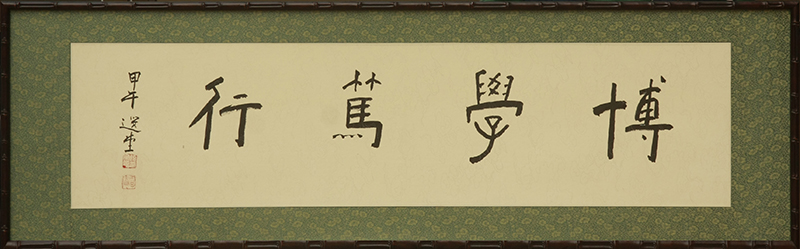 博學篤行
甲午 選堂